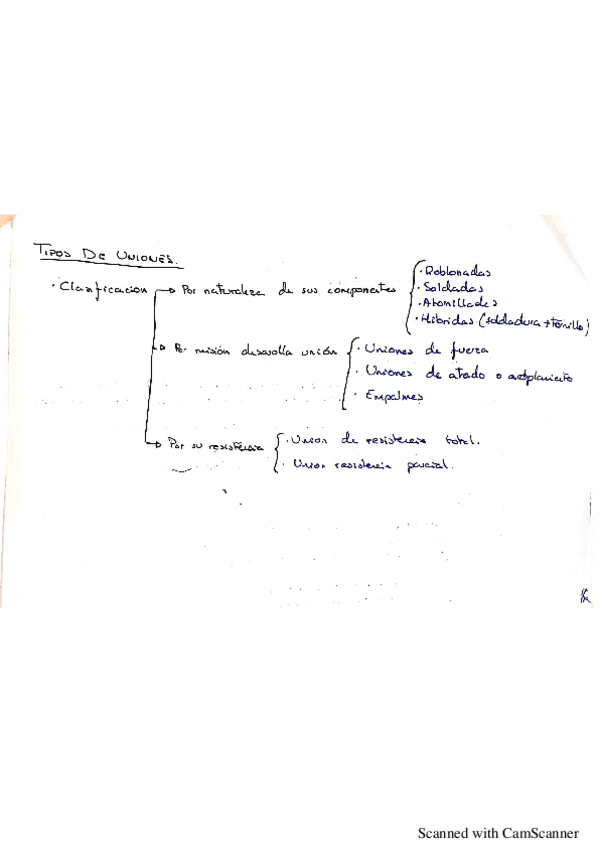 TIPOS DE UNIONES.
· Clasificacion → Por naturaleza de sus componentes
· Roblonadas
· Soldadas
· Atornilladas
· Hibridas (soldadura + tornillo)
→ Por misión desarrolla unión
· Uniones de fuerza
· Uniones de atado o acoplamiento
· Empalmes
→ Por su resistencia
· Union de resistencia total.
· Union resistencia parcial.
Scanned with CamScanner